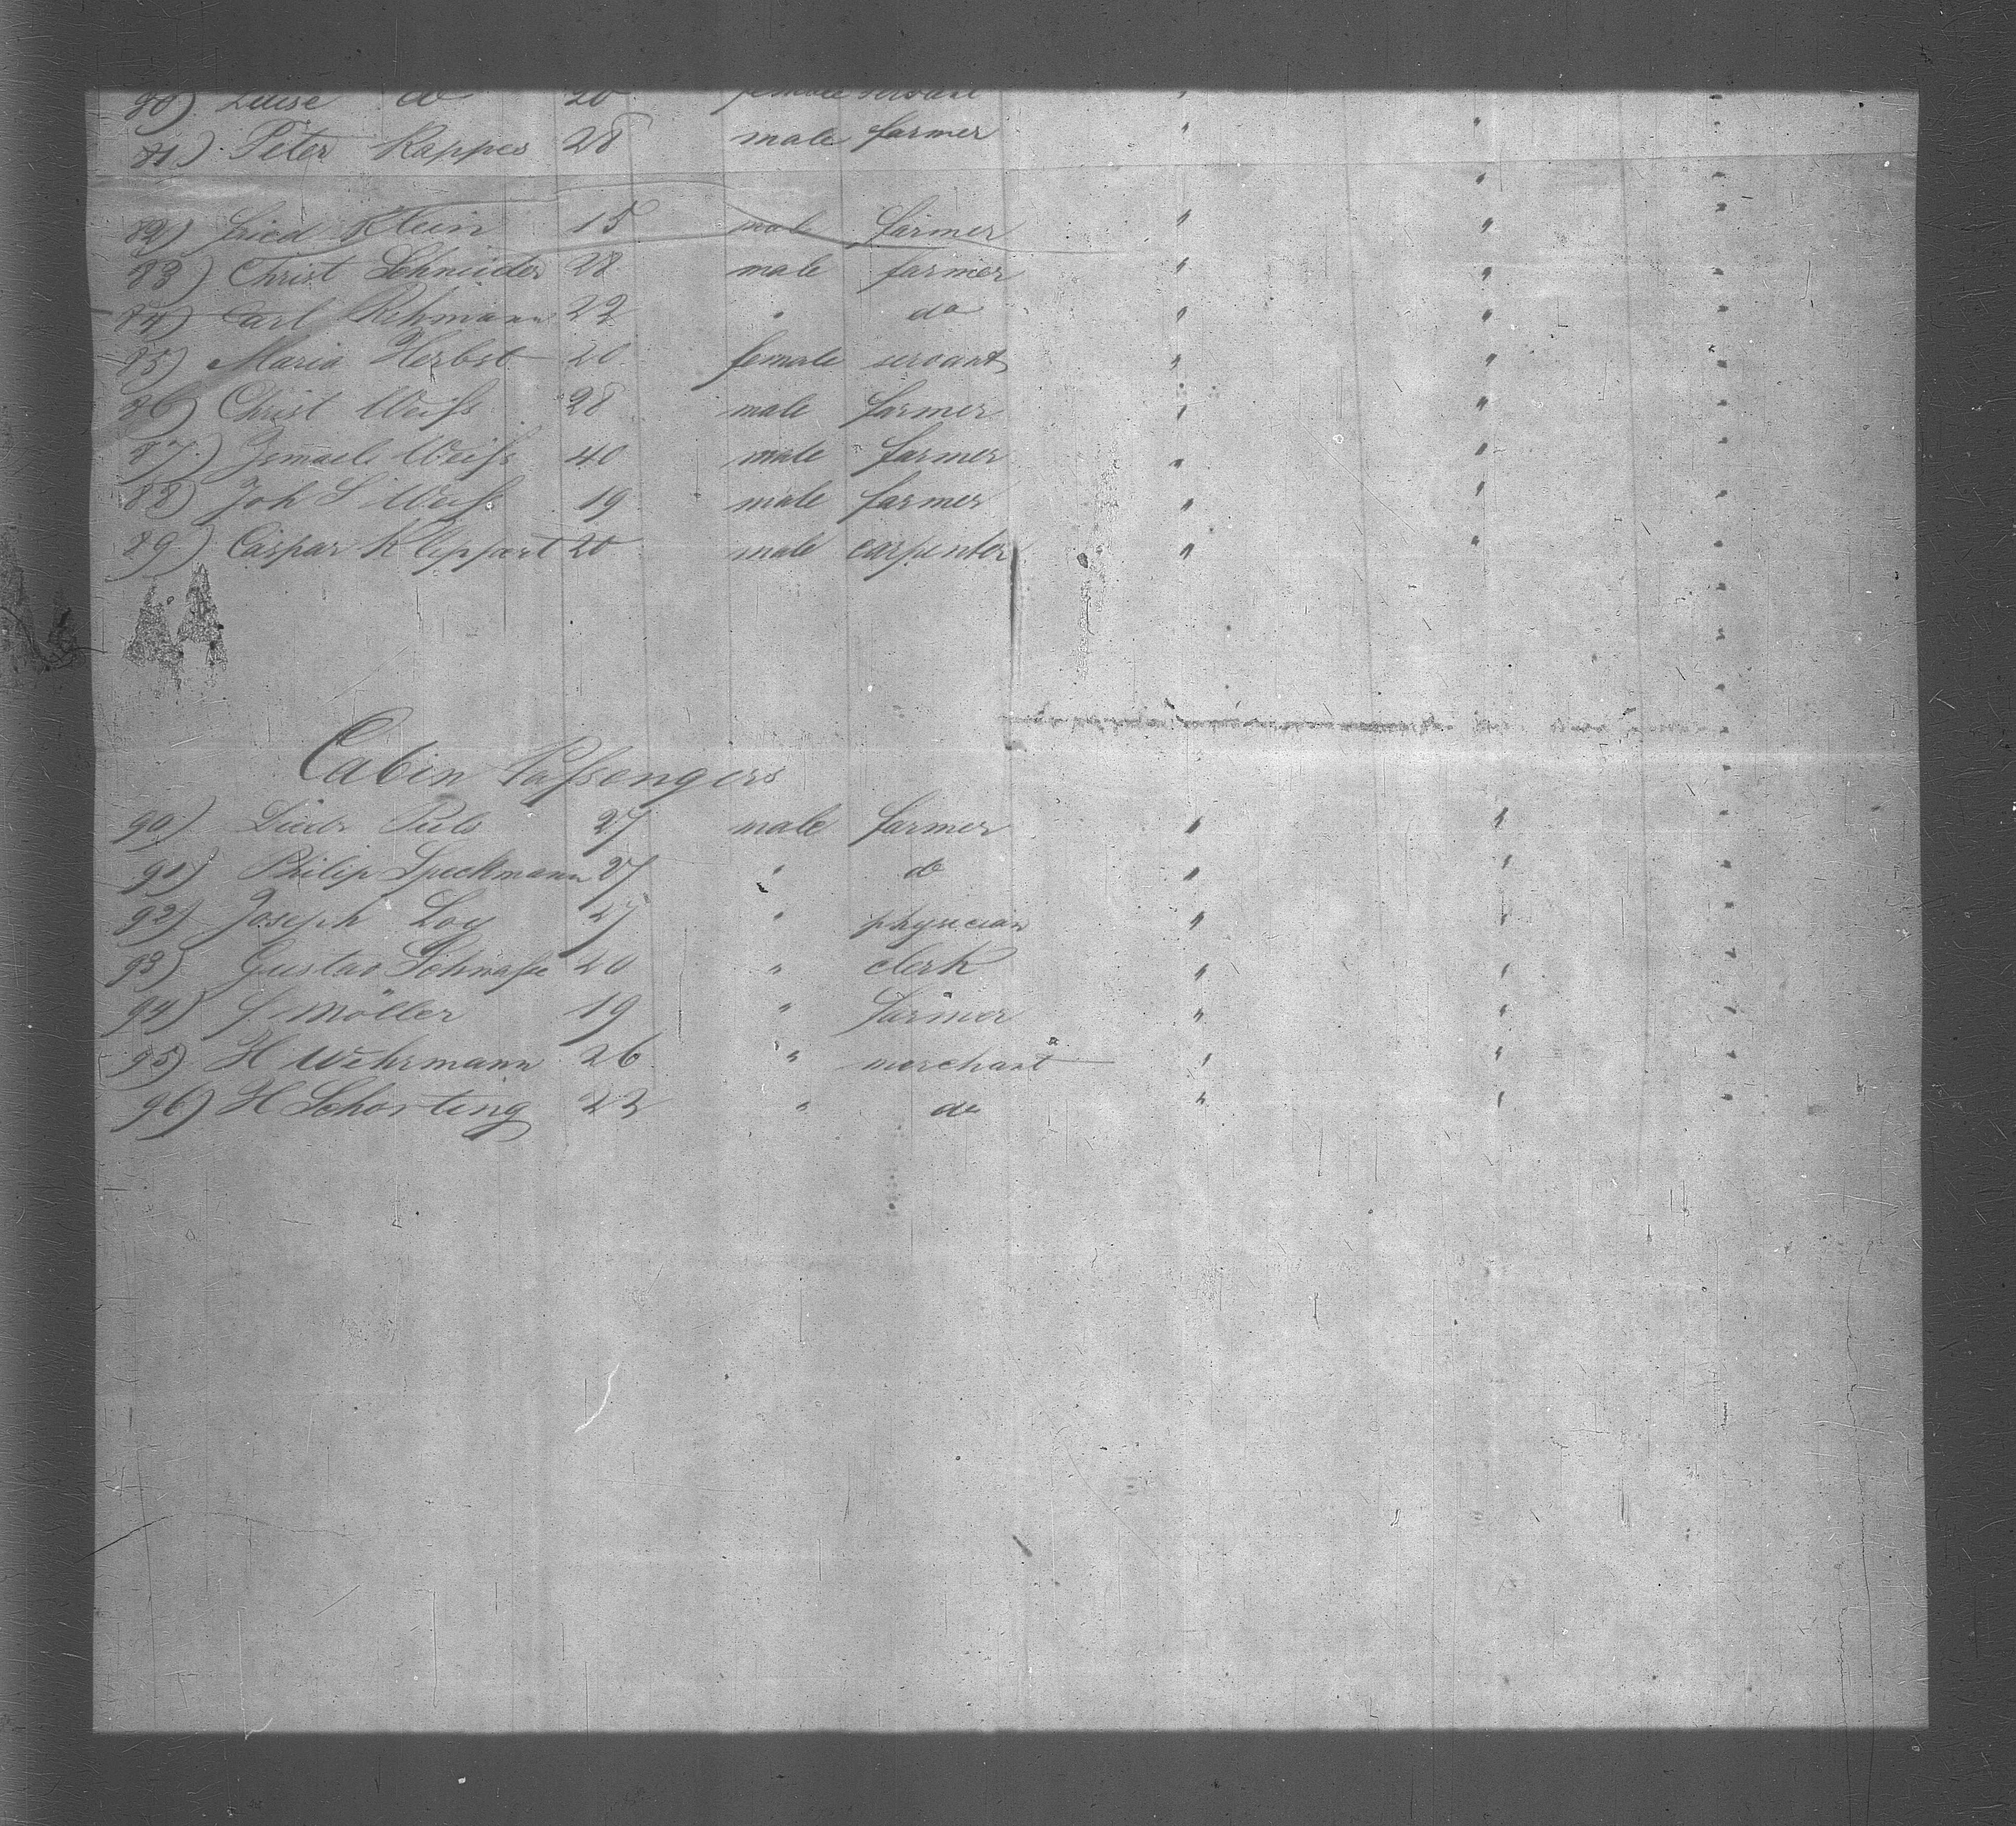 80) Luise do 20 female servant " " "
81) Peter Kappes 28 male farmer " " "
82) Fried Klein 15 male farmer " " "
83) Christ Schneider 28 male farmer " " "
84) Carl Rehmann 22 " do " " "
85) Maria Herbst 20 female servant " " "
86) Christ Weiſs 28 male farmer " " "
87) Ismael Weiſs 40 male farmer " " "
88) Joh S Weiſs 19 male farmer " " "
89) Caspar Klippert 20 male carpenter " " "
Cabin Paſsengers
90) Puls 27 male farmer " " "
91) Philip Speckmann 27 " do " " "
92) Joseph Loy 27 " physician " " "
93) Gustav 20 " clerk " " "
94) Möller 19 " farmer " " "
95) H Wehrmann 26 " merchant " " "
96) H Schorting 22 " do " " "